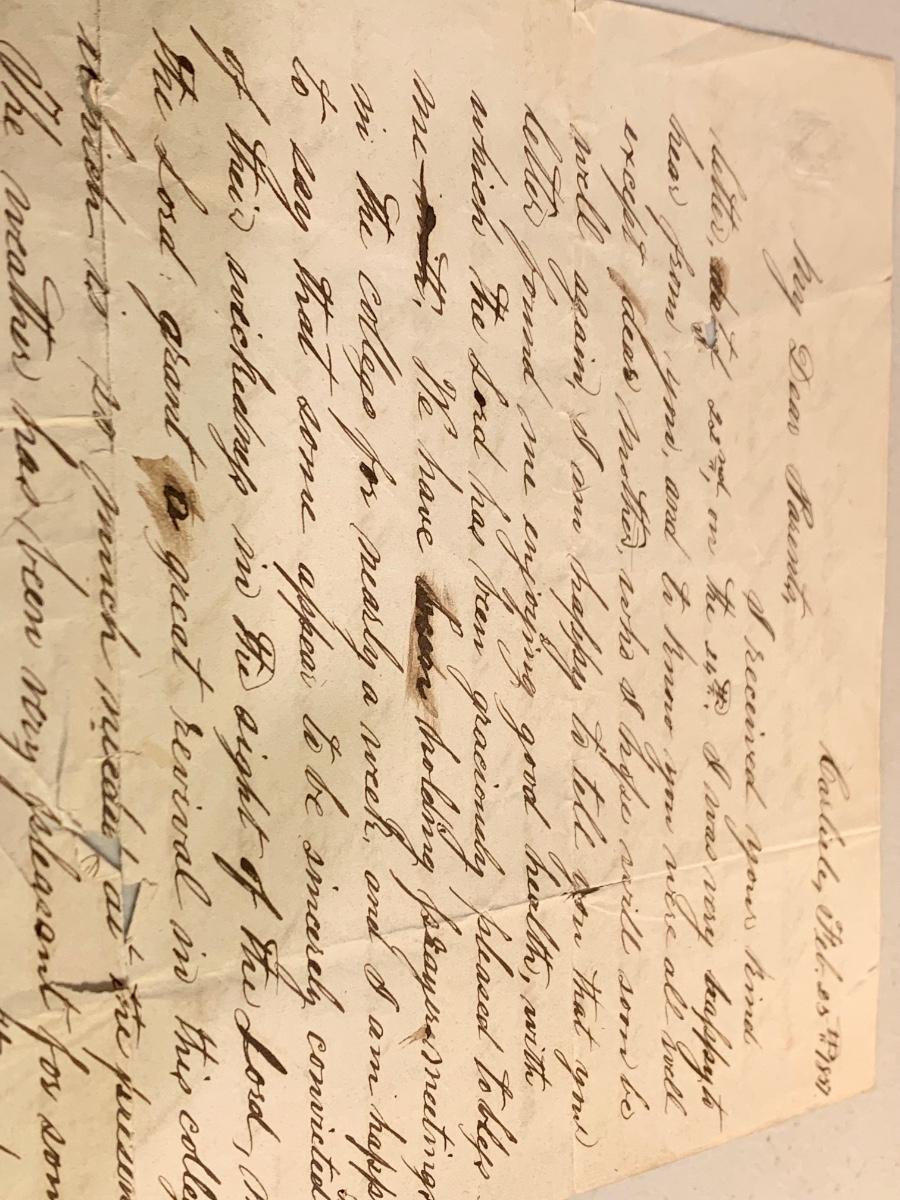 Carlisle, Feb. 25th
My Dear Parents,
I received your kind
letter, 22nd, on the 24th. I was very happy to
hear from you, and to know you were al well
except dear mother, who I hope will soon be
well again, I am happy to tell you that your
letter found me enjoying good health, with
which the Lord has been graciously pleased to bless
me with, We have been holding prayer meetings
in the college for nearly a week, and I am happ
to say that some appear to be sincerely convicted
of their wickedness in the sight of the Lord,
the Lord grant a great revival in this colle
which is so much needed at the presen
The weather has been very pleasant for som